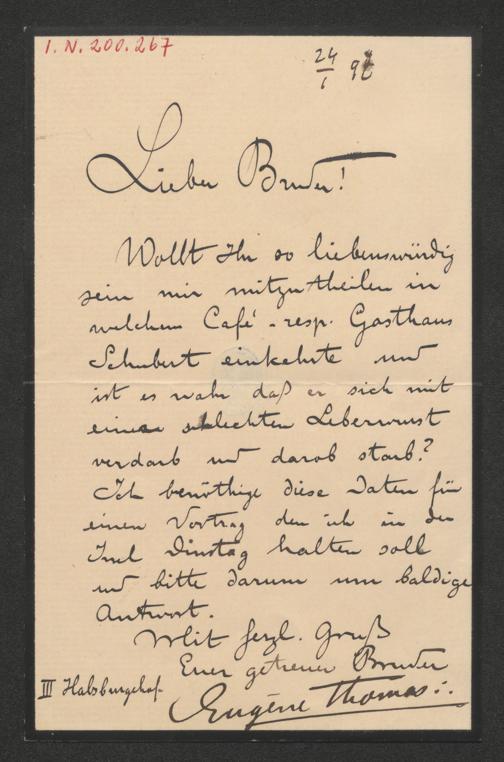 I. N. 200.267
24/1 9
Lieber Bruder!
Wollt Ihr so liebenswürdig
sein mir mitzutheilen in
welchem Café - resp. Gasthaus
Schubert einkehrte und
ist es wahr daß er sich mit
einer schlechten Leberwurst
verdarb und darob starb?
Ich benöthige diese Daten für
einen Vortrag den ich in der
Insel Dinstag halten soll
und bitte darum um baldige
Antwort.
Mit herzl. Gruß
Euer getreuer Bruder
III Habsburgerhof.
Eugène Thomas